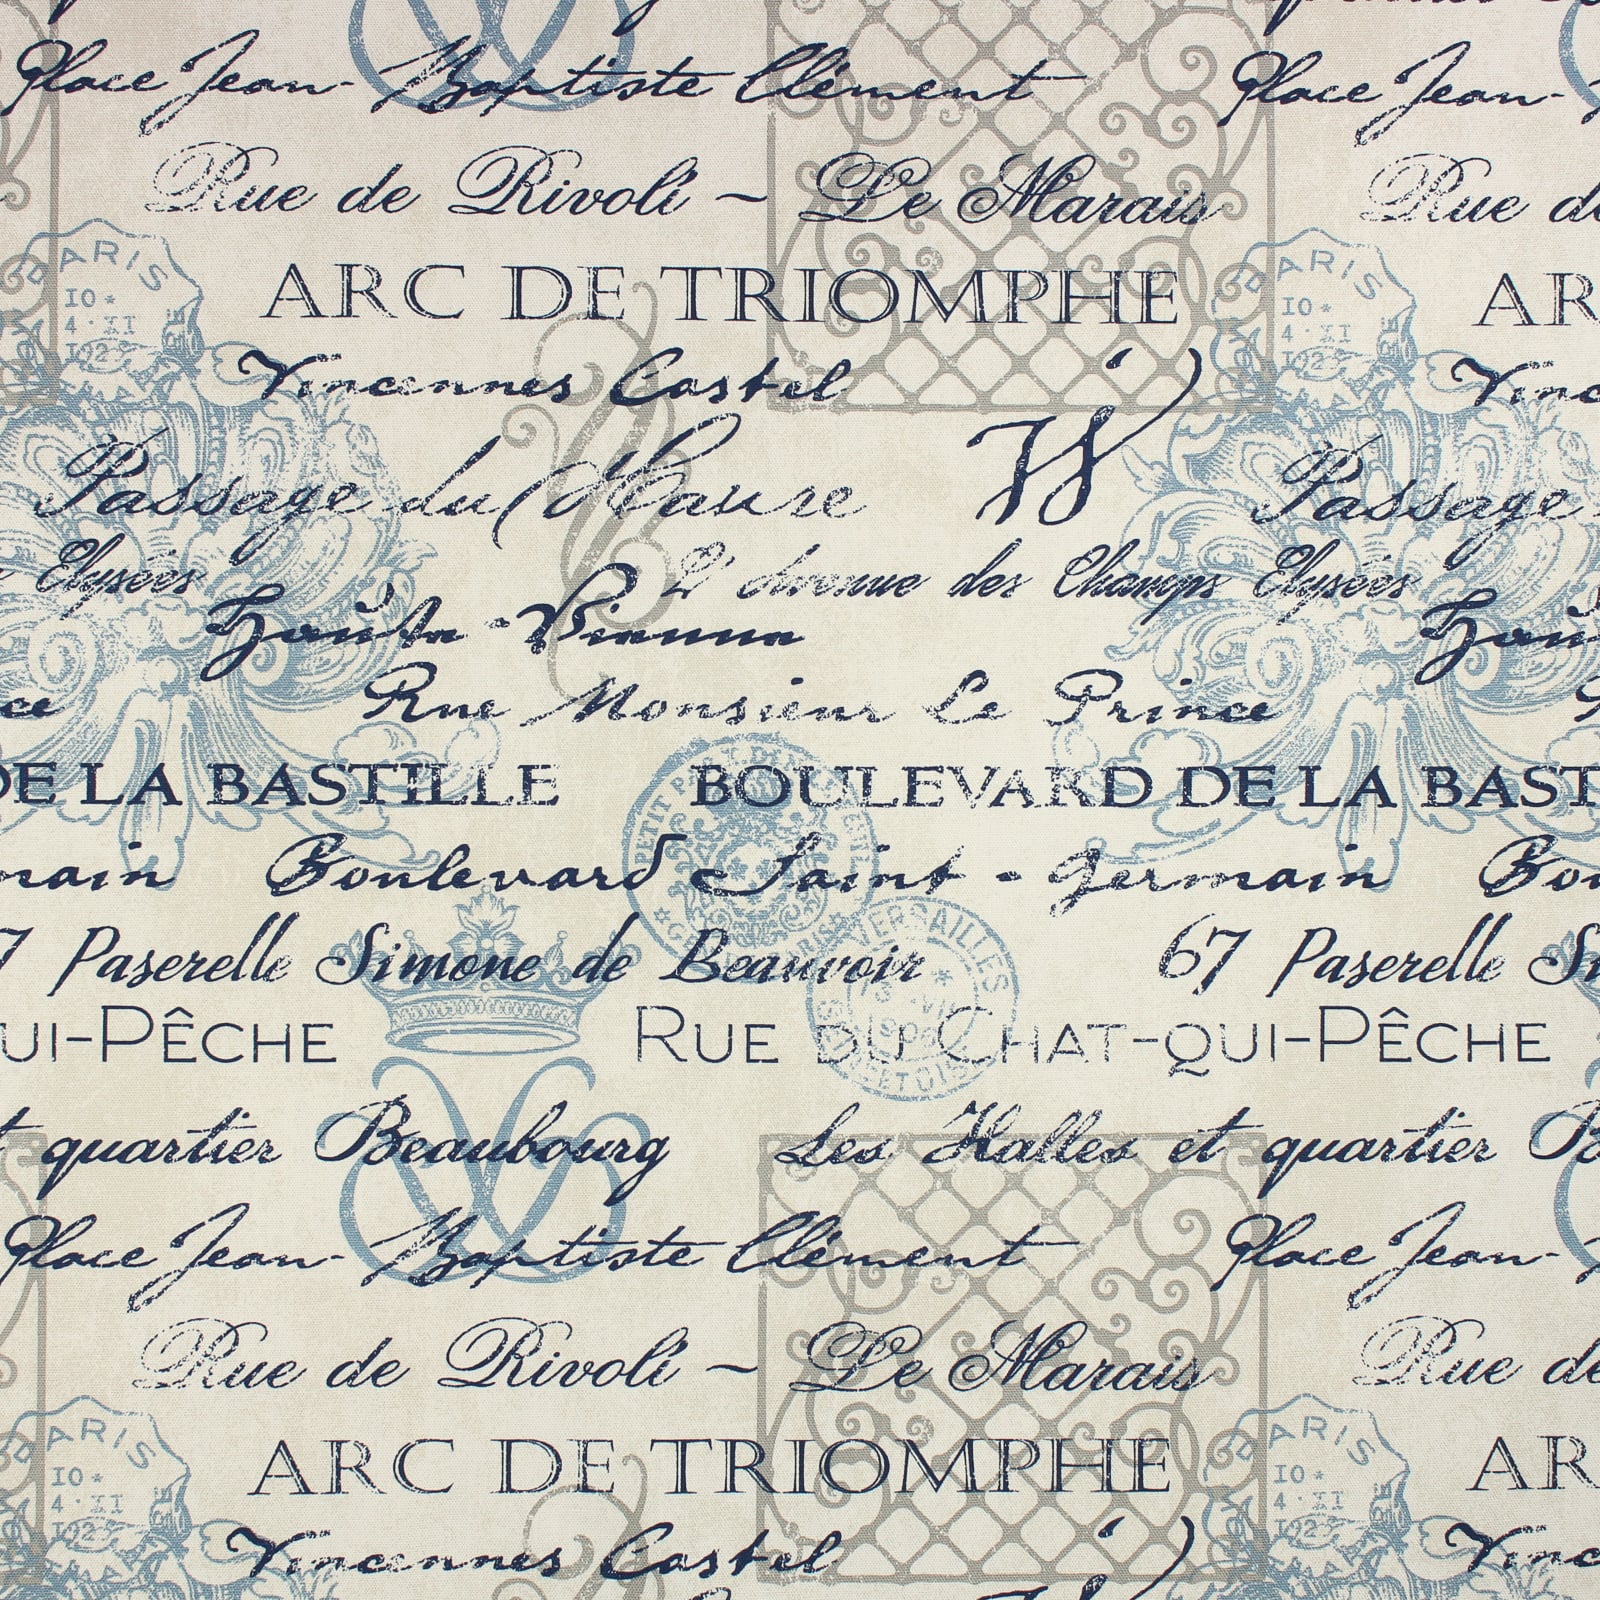 Place Jean-Baptiste Clément Place Jean-
Rue de Rivoli ~ Le Marais Rue de
PARIS PARIS
10* 10*
4·II 4·II
192 192
ARC DE TRIOMPHE AR
Vincennes Castel Vinc
Passage du Havre W Passage
Elysées L'avenue des Champs Elysées
Haute-Vienne Hau
ce Rue Monsieur Le Prince R
DE LA BASTILLE BOULEVARD DE LA BAST
PETIT
main Boulevard Saint-Germain Bou
PARIS
VERSAILLES
7 Paserelle Simone de Beauvoir 67 Paserelle Si
UI-PÊCHE RUE DU CHAT-QUI-PÊCHE
ET OISE
t quartier Beaubourg Les Halles et quartier B
Place Jean-Baptiste Clément Place Jean-
Rue de Rivoli ~ Le Marais Rue de
PARIS PARIS
10* 10*
4·II 4·II
192 192
ARC DE TRIOMPHE AR
Vincennes Castel Vinc